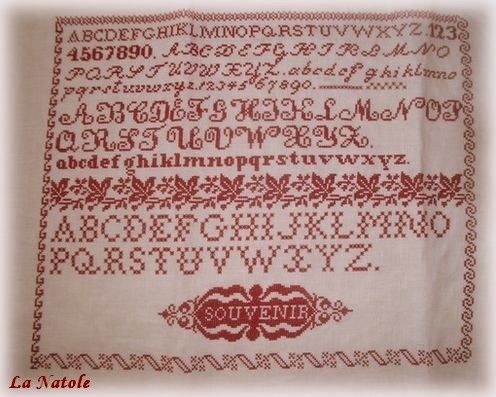 ABCDEFGHIKLMNOPQRSTUVWXYZ.123
4567890. ABCDEFGHIKLMNO
PQRSTUVWXYZ. abcdefghiklmno
pqrstuvwxyz.1234567890.
ABCDEFGHIKLMNOP
QRSTUVWXYZ.
abcdefghiklmnopqrstuvwxyz.
ABCDEFGHIJKLMNO
PQRSTUVWXYZ.
SOUVENIR
La Natole